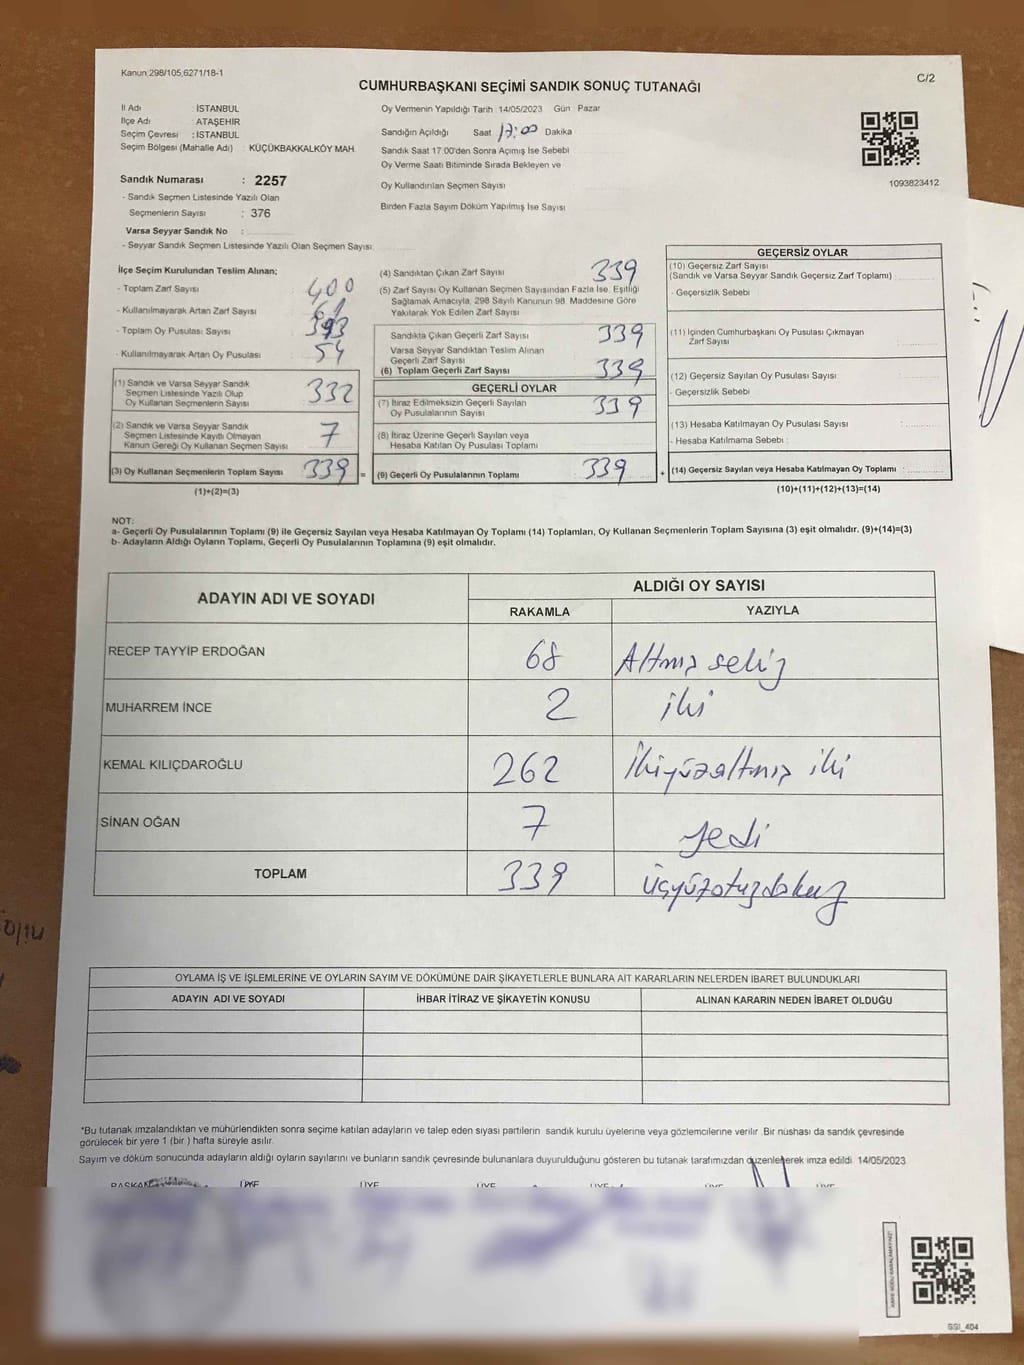 Kanun;298/105,6271/18-1
C/2
CUMHURBAŞKANI SEÇİMİ SANDIK SONUÇ TUTANAĞI
İl Adı : İSTANBUL
İlçe Adı : ATAŞEHİR
Seçim Çevresi : İSTANBUL
Seçim Bölgesi (Mahalle Adı) : KÜÇÜKBAKKALKÖY MAH.
Sandık Numarası : 2257
- Sandık Seçmen Listesinde Yazılı Olan
Seçmenlerin Sayısı : 376
Varsa Seyyar Sandık No :
- Seyyar Sandık Seçmen Listesinde Yazılı Olan Seçmen Sayısı:
Oy Vermenin Yapıldığı Tarih :14/05/2023 Gün : Pazar
Sandığın Açıldığı Saat 17:00 Dakika
Sandık Saat 17:00'den Sonra Açımış İse Sebebi
Oy Verme Saati Bitiminde Sırada Bekleyen ve
Oy Kullandırılan Seçmen Sayısı
Birden Fazla Sayım Döküm Yapılmış İse Sayısı
1093823412
İlçe Seçim Kurulundan Teslim Alınan;
- Toplam Zarf Sayısı 400
- Kullanılmayarak Artan Zarf Sayısı 61
- Toplam Oy Pusulası Sayısı 393
- Kullanılmayarak Artan Oy Pusulası 54
(1) Sandık ve Varsa Seyyar Sandık
Seçmen Listesinde Yazılı Olup
Oy Kullanan Seçmenlerin Sayısı 332
(2) Sandık ve Varsa Seyyar Sandık
Seçmen Listesinde Kayıtlı Olmayan
Kanun Gereği Oy Kullanan Seçmen Sayısı 7
(3) Oy Kullanan Seçmenlerin Toplam Sayısı 339 =
(1)+(2)=(3)
(4) Sandıktan Çıkan Zarf Sayısı 339
(5) Zarf Sayısı Oy Kullanan Seçmen Sayısından Fazla İse, Eşitliği
Sağlamak Amacıyla, 298 Sayılı Kanunun 98. Maddesine Göre
Yakılarak Yok Edilen Zarf Sayısı
Sandıkta Çıkan Geçerli Zarf Sayısı 339
Varsa Seyyar Sandıktan Teslim Alınan
Geçerli Zarf Sayısı
(6) Toplam Geçerli Zarf Sayısı 339
GEÇERLİ OYLAR
(7) İtiraz Edilmeksizin Geçerli Sayılan
Oy Pusulalarının Sayısı 339
(8) İtiraz Üzerine Geçerli Sayılan veya
Hesaba Katılan Oy Pusulası Toplamı
(9) Geçerli Oy Pusulalarının Toplamı 339 +
GEÇERSİZ OYLAR
(10) Geçersiz Zarf Sayısı
(Sandık ve Varsa Seyyar Sandık Geçersiz Zarf Toplamı) :
- Geçersizlik Sebebi :
(11) İçinden Cumhurbaşkanı Oy Pusulası Çıkmayan
Zarf Sayısı :
(12) Geçersiz Sayılan Oy Pusulası Sayısı :
- Geçersizlik Sebebi :
(13) Hesaba Katılmayan Oy Pusulası Sayısı :
- Hesaba Katılmama Sebebi :
(14) Geçersiz Sayılan veya Hesaba Katılmayan Oy Toplamı :
(10)+(11)+(12)+(13)=(14)
NOT:
a- Geçerli Oy Pusulalarının Toplamı (9) ile Geçersiz Sayılan veya Hesaba Katılmayan Oy Toplamı (14) Toplamları, Oy Kullanan Seçmenlerin Toplam Sayısına (3) eşit olmalıdır. (9)+(14)=(3)
b- Adayların Aldığı Oyların Toplamı, Geçerli Oy Pusulalarının Toplamına (9) eşit olmalıdır.
ADAYIN ADI VE SOYADI
ALDIĞI OY SAYISI
RAKAMLA YAZIYLA
RECEP TAYYİP ERDOĞAN 68 Altmış sekiz
MUHARREM İNCE 2 iki
KEMAL KILIÇDAROĞLU 262 İkiyüzaltmış iki
SİNAN OĞAN 7 yedi
TOPLAM 339 üçyüzotuzdokuz
OYLAMA İŞ VE İŞLEMLERİNE VE OYLARIN SAYIM VE DÖKÜMÜNE DAİR ŞİKAYETLERLE BUNLARA AİT KARARLARIN NELERDEN İBARET BULUNDUKLARI
ADAYIN ADI VE SOYADI İHBAR İTİRAZ VE ŞİKAYETİN KONUSU ALINAN KARARIN NEDEN İBARET OLDUĞU
*Bu tutanak imzalandıktan ve mühürlendikten sonra seçime katılan adayların ve talep eden siyasi partilerin sandık kurulu üyelerine veya gözlemcilerine verilir. Bir nüshası da sandık çevresinde
görülecek bir yere 1 (bir ) hafta süreyle asılır.
Sayım ve döküm sonucunda adayların aldığı oyların sayılarını ve bunların sandık çevresinde bulunanlara duyurulduğunu gösteren bu tutanak tarafımızdan düzenlenerek imza edildi. 14/05/2023
BAŞKAN ÜYE ÜYE ÜYE ÜYE ÜYE ÜYE
SSI_404